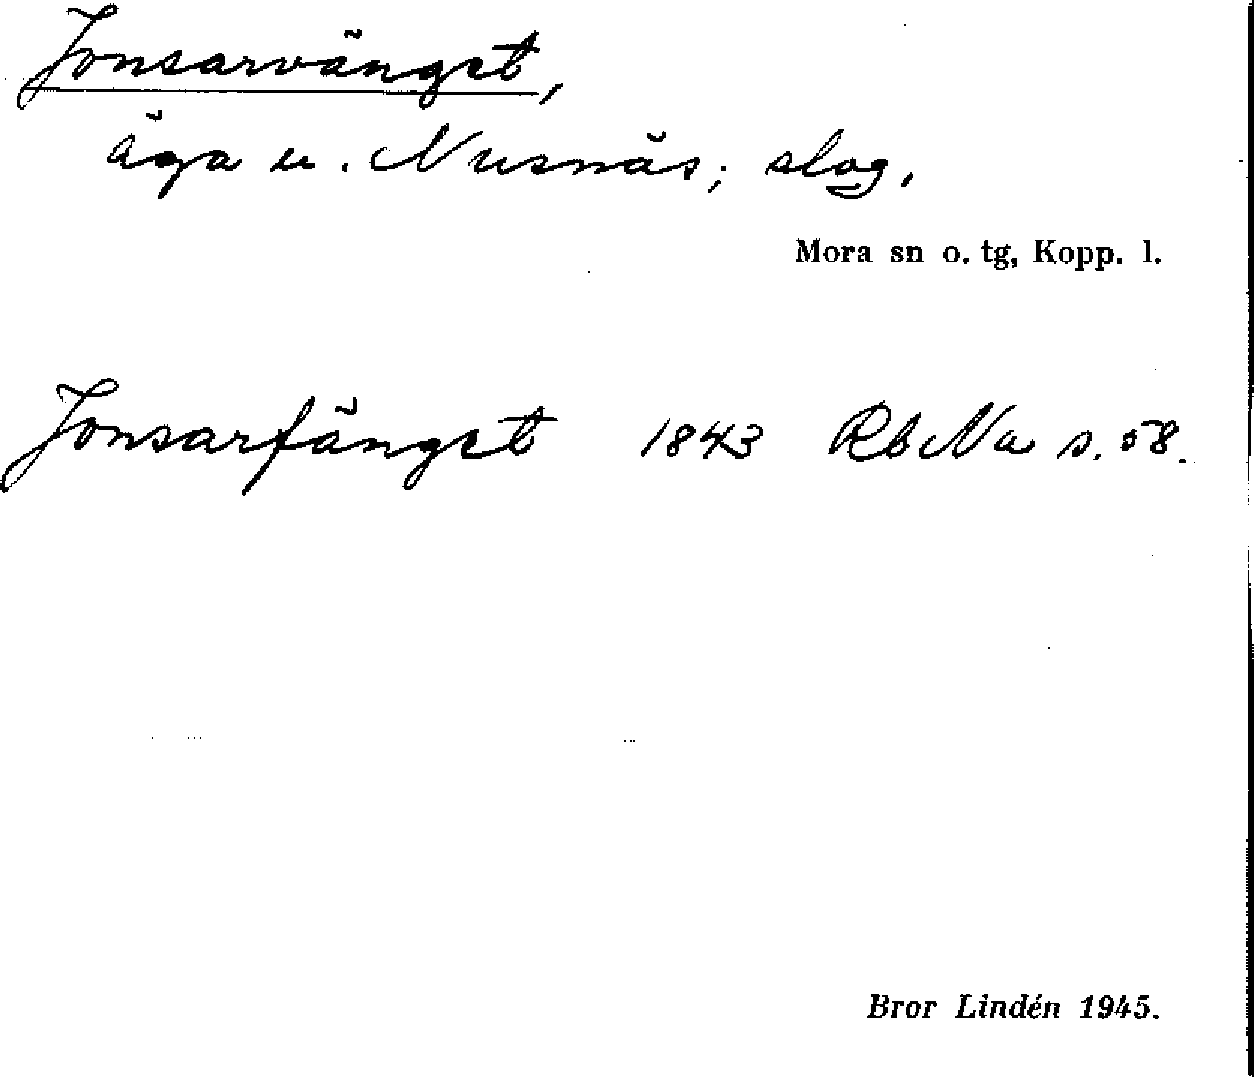 Jonsarvänget,
äga u. Nusnäs; slog.
Mora sn o. tg, Kopp. l.
Jonsarfänget 1843 Rb Na s. 58.
Bror Lindén 1945.